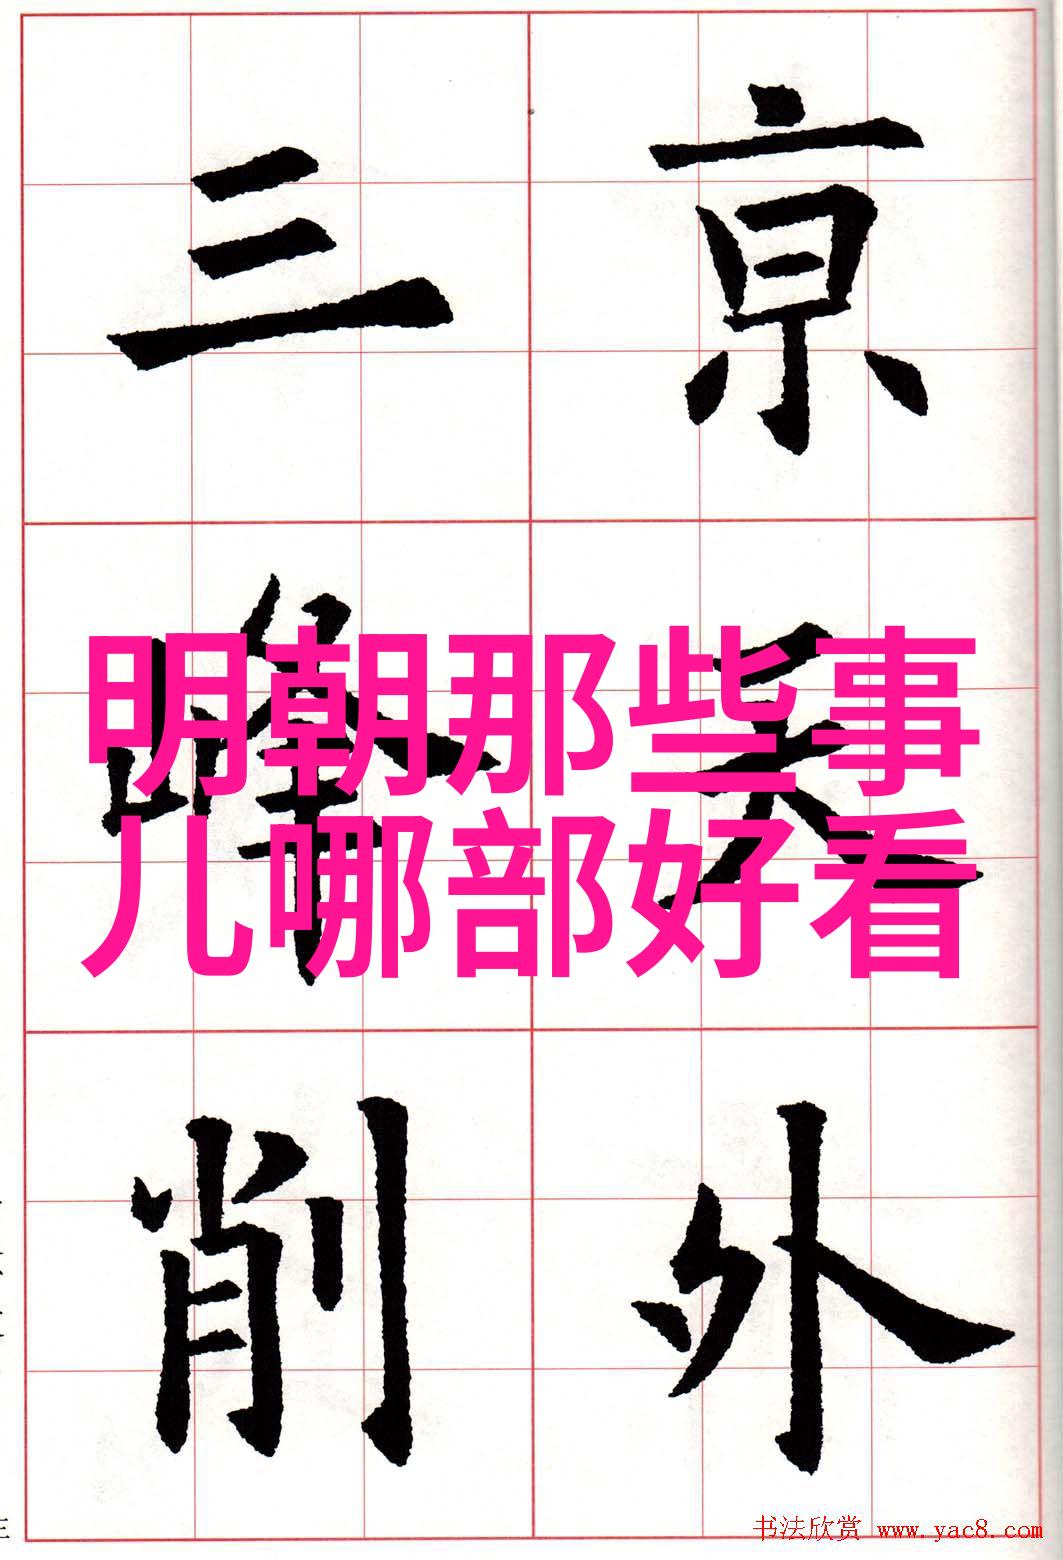 亰天外
三峰削
明朝那些事
儿哪部好看
书法欣赏 www.yac8.com